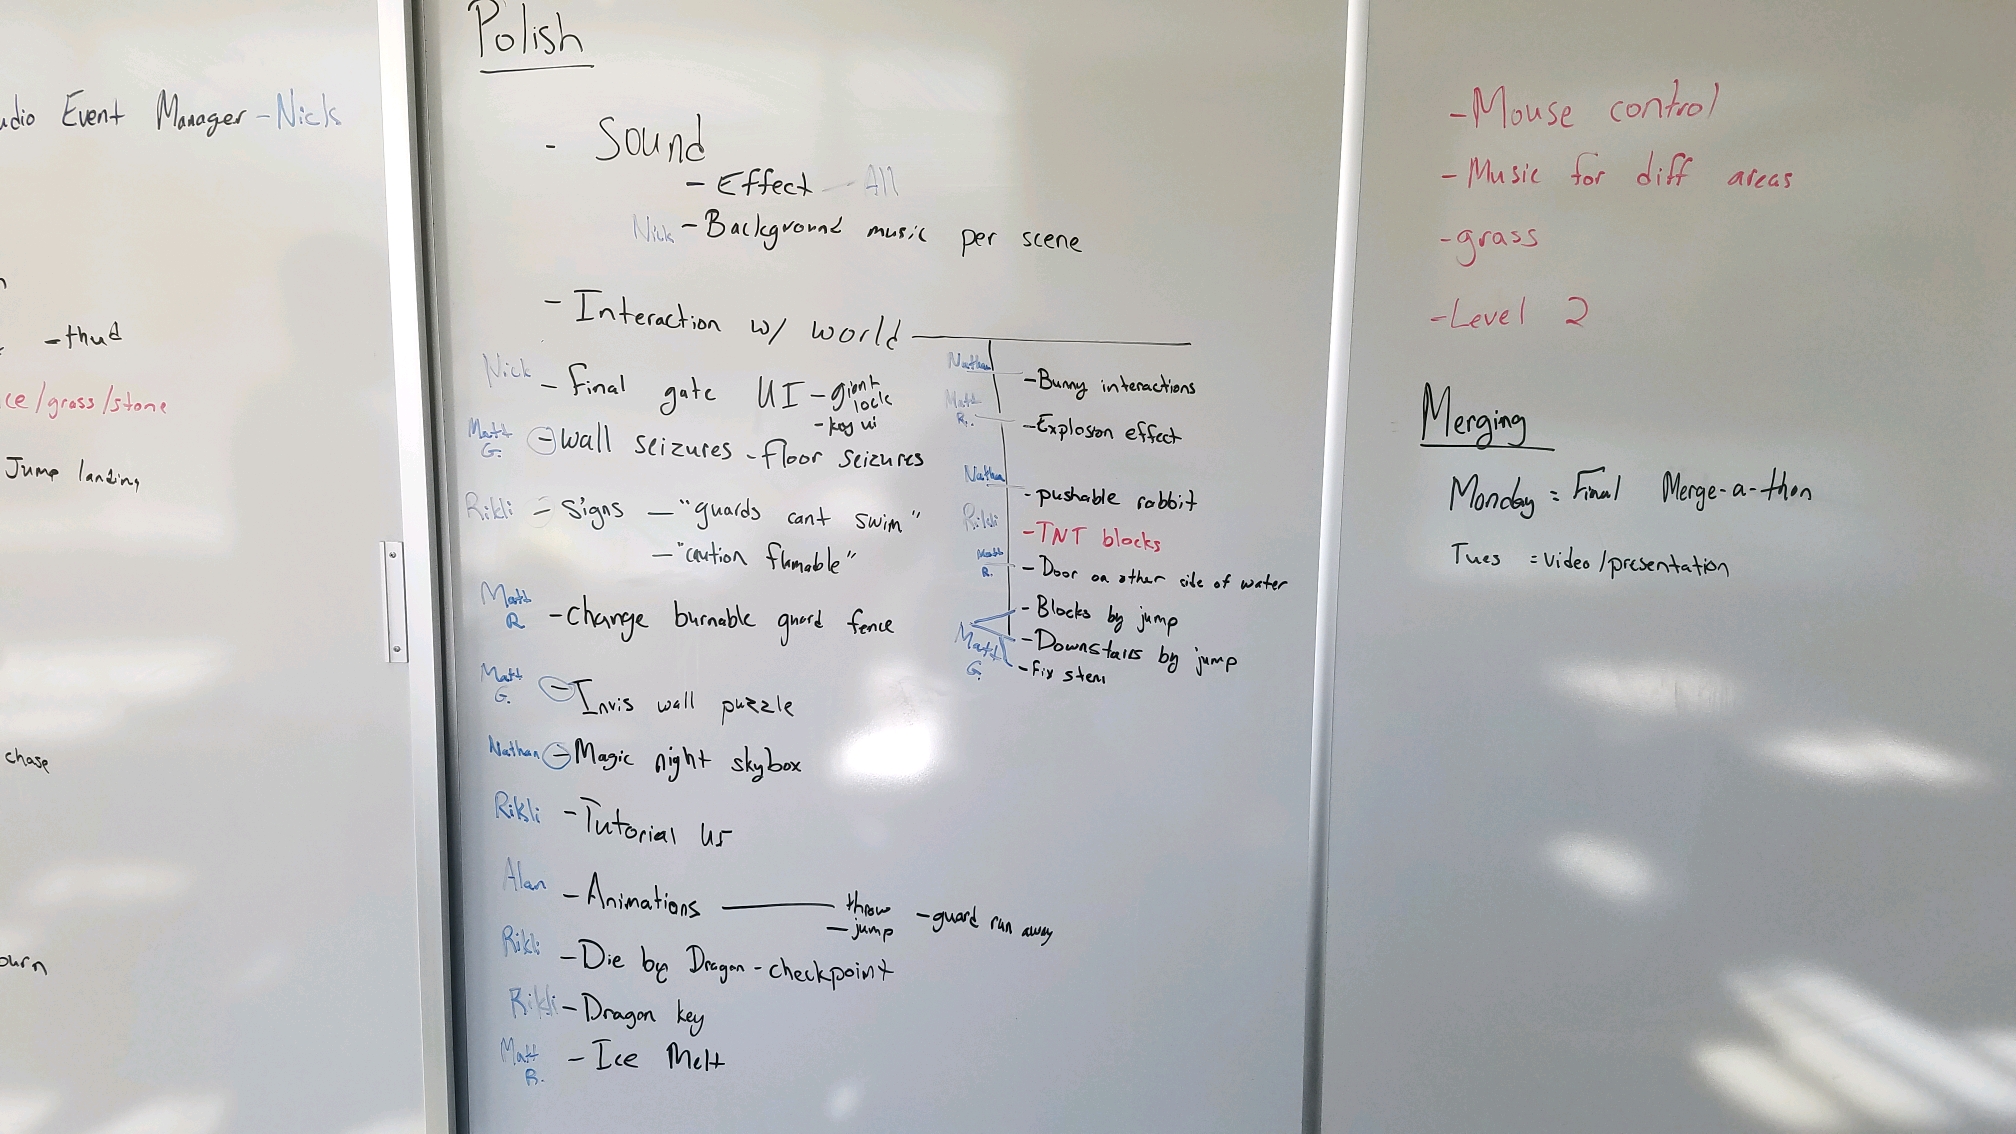 Event Manager - Nick
- thud
/grass/stone
Jump landing
chase
Polish
- Sound
- Effect - All
Nick - Background music per scene
- Interaction w/ world
Nick - final gate UI - giant lock
- key ui
Matt G. - wall seizures - floor seizures
Rikli - Signs - "guards cant swim"
- "caution flamable"
Matt R - change burnable guard fence
Matt G. - Invis wall puzzle
Nathan - Magic night skybox
Rikli - Tutorial
Alan - Animations - throw - guard run away
- jump
Rikli - Die by Dragon - checkpoint
Rikli - Dragon key
Matt R. - Ice Melt
Nathan - Bunny interactions
Matt R. - Explosion effect
Nathan - pushable rabbit
Rikli - TNT blocks
Matt R. - Door on other side of water
- Blocks by jump
Matt G. - Downstairs by jump
- fix stem
- Mouse control
- Music for diff areas
- grass
- Level 2
Merging
Monday = Final Merge-a-thon
Tues = video/presentation